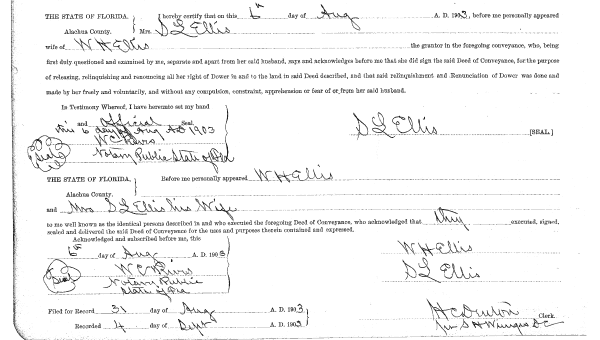 THE STATE OF FLORIDA. I hereby certify that on this 6th day of Aug A. D. 1903, before me personally appeared
Alachua County. Mrs. S L Ellis
wife of W H Ellis the grantor in the foregoing conveyance, who, being
first duly questioned and examined by me, separate and apart from her said husband, says and acknowledges before me that she did sign the said Deed of Conveyance, for the purpose
of releasing, relinquishing and renouncing all her right of Dower in and to the land in said Deed described, and that said relinquishment and Renunciation of Dower was done and
made by her freely and voluntarily, and without any compulsion, constraint, apprehension or fear of or from her said husband.
In Testimony Whereof, I have hereunto set my hand
and official Seal.
this 6 day of Aug A D 1903
S L Ellis [SEAL.]
W C
Seal Notary Public State of Fla
THE STATE OF FLORIDA. Before me personally appeared W H Ellis
Alachua County.
and Mrs S L Ellis his Wife
to me well known as the identical persons described in and who executed the foregoing Deed of Conveyance, who acknowledged that they executed, signed,
sealed and delivered the said Deed of Conveyance for the uses and purposes therein contained and expressed.
Acknowledged and subscribed before me, this
6th day of Aug A. D. 1903
W H Ellis
Seal W C
S L Ellis
Notary Public
State of Fla
Filed for Record 31 day of Aug A. D. 1903
H C Denton Clerk.
Recorded 4 day of Sept A. D. 1903
Per S H D C